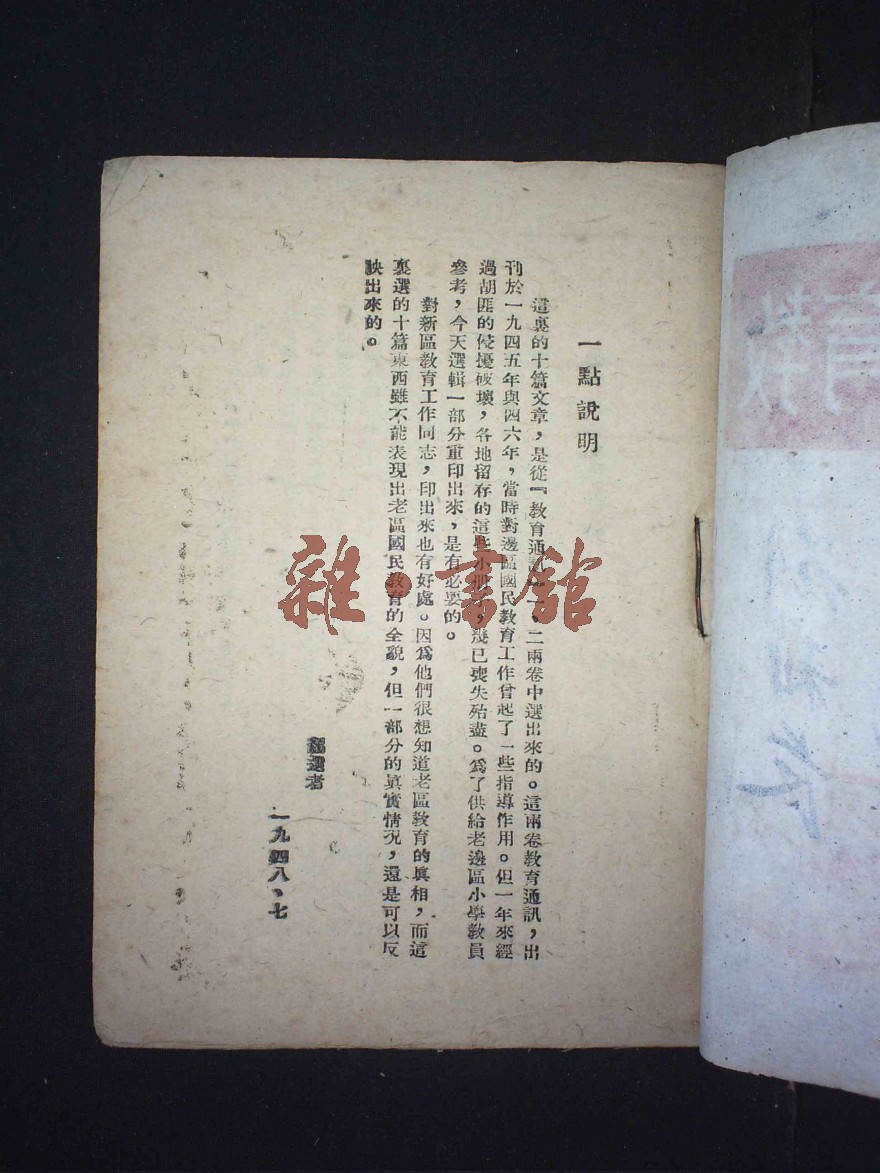 一點說明
這裏的十篇文章，是從『教育通訊』一、二兩卷中選出來的。這兩卷教育通訊，出
刊於一九四五年與四六年，當時對邊區國民教育工作曾起了一些指導作用。但一年來經
過胡匪的侵擾破壞，各地留存的這些小册子，幾已喪失殆盡。爲了供給老邊區小學教員
參考，今天選輯一部分重印出來，是有必要的。
對新區教育工作同志，印出來也有好處。因爲他們很想知道老區教育的眞相，而這
裏選的十篇東西雖不能表現出老區國民教育的全貌，但一部分的眞實情況，還是可以反
映出來的。
編選者
一九四八、七
雜·書館